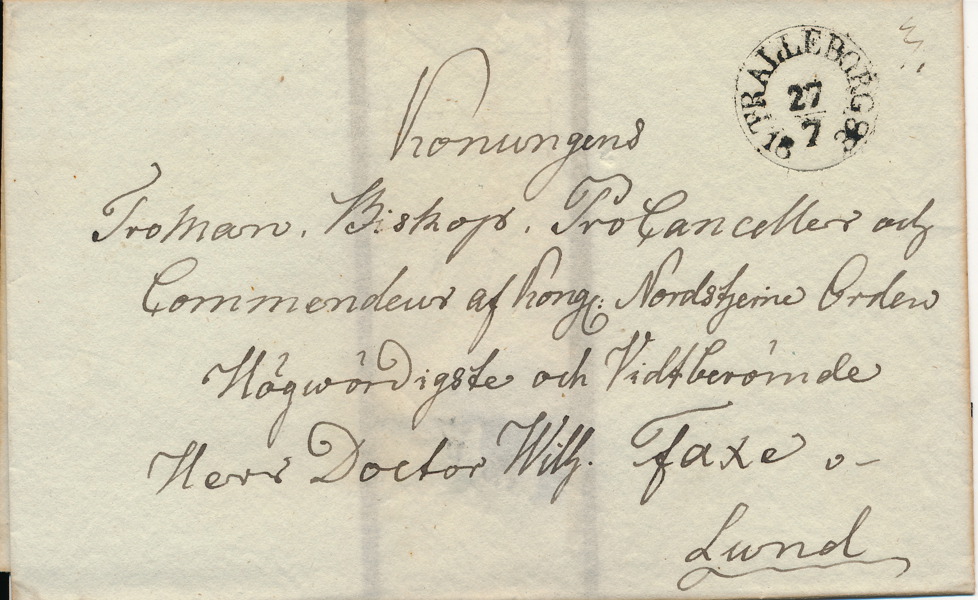 TRALLEBORG
27
7
1838
Konungens
Troman, Biskop, ProCanceller och
Commendeur af Kongl: Nordstjerne Orden
Högwördigste och Vidtberömde
Herr Doctor Wilh. Faxe
Lund